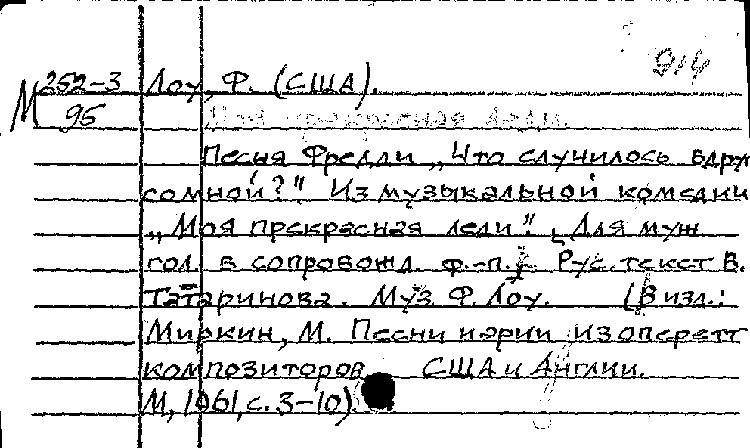 914
М 252-3 Лоу, Ф. (США).
96 Моя прекрасная леди.
Песня Фредди „Что случилось вдруг
со мной?" Из музыкальной комедии
„Моя прекрасная леди". Для муж
гол. в сопровожд. ф.-п. Рус. текст В.
Татаринова. Муз. Ф. Лоу. (В изд.:
Миркин, М. Песни и арии из оперетт
композиторов США и Англии.
М, 1961, с. 3-10)